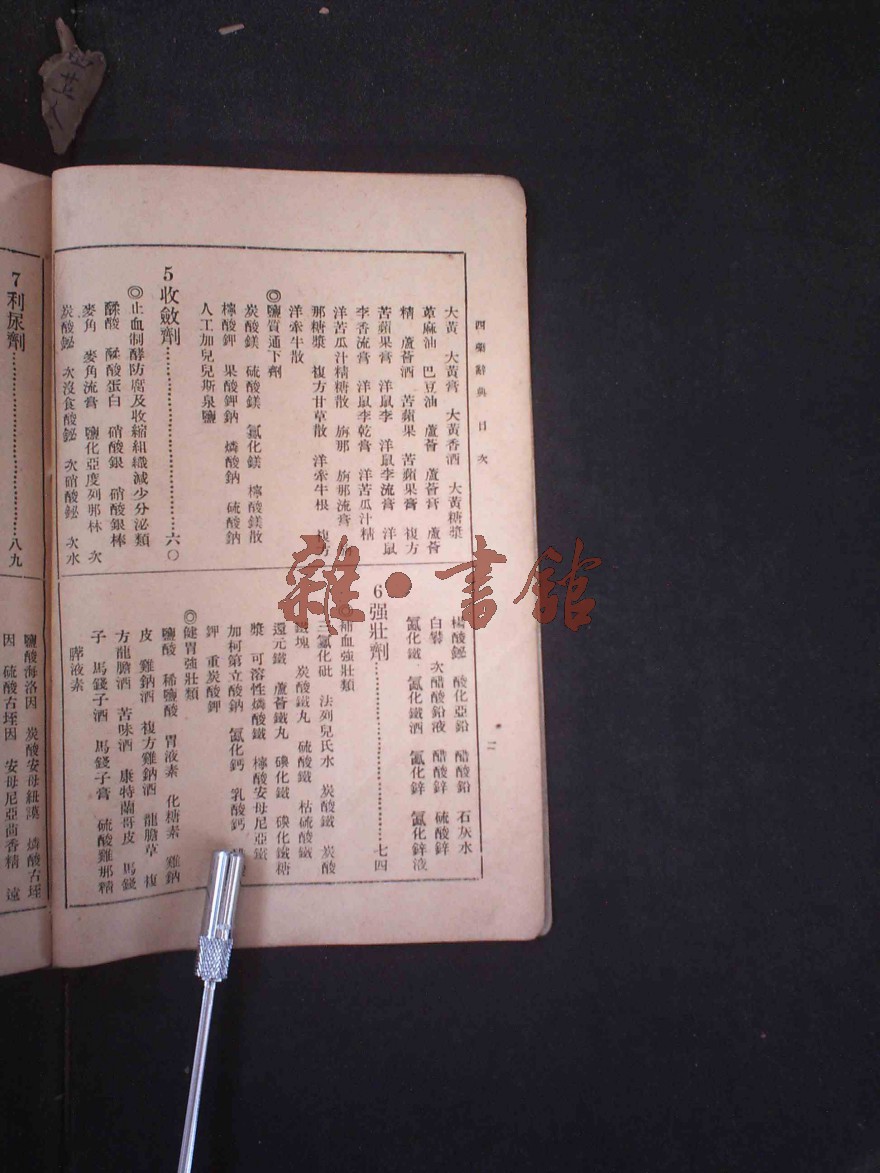 西藥辭典 目次
二
大黃 大黃膏 大黃香酒 大黃糖漿
萆麻油 巴豆油 蘆薈 蘆薈膏 蘆薈
精 蘆薈酒 苦蘋果 苦蘋果膏 複方
苦蘋果膏 洋鼠李 洋鼠李流膏 洋鼠
李香流膏 洋鼠李乾膏 洋苦瓜汁精
洋苦瓜汁精糖散 旃那 旃那流膏
那糖漿 複方甘草散 洋牽牛根 複方
洋牽牛散
◎鹽質通下劑
炭酸鎂 硫酸鎂 氯化鎂 檸酸鎂散
檸酸鉀 果酸鉀鈉 燐酸鈉 硫酸鈉
人工加兒兒斯泉鹽
5 收斂劑…………………六〇
◎止血制酵防腐及收縮組織減少分泌類
鞣酸 鞣酸蛋白 硝酸銀 硝酸銀棒
麥角 麥角流膏 鹽化亞度列那林 次
炭酸鉍 次沒食酸鉍 次硝酸鉍 次水
楊酸鉍 酸化亞鉛 醋酸鉛 石灰水
白礬 次醋酸鉛液 醋酸鋅 硫酸鋅
氯化鐵 氯化鐵酒 氯化鋅 氯化鋅液
6 强壯劑…………………七四
◎補血強壯類
三氯化砒 法列兒氏水 炭酸鐵 炭酸
鐵塊 炭酸鐵丸 硫酸鐵 枯硫酸鐵
還元鐵 蘆薈鐵丸 碘化鐵 碘化鐵糖
漿 可溶性燐酸鐵 檸酸安母尼亞鐵
加柯第立酸鈉 氯化鈣 乳酸鈣
鉀 重炭酸鉀
◎健胃強壯類
鹽酸 稀鹽酸 胃液素 化糖素 雞鈉
皮 雞鈉酒 複方雞鈉酒 龍膽草 複
方龍膽酒 苦味酒 康特蘭哥皮 馬錢
子 馬錢子酒 馬錢子膏 硫酸雞那精
膵液素
7 利尿劑…………………八九
鹽酸海洛因 炭酸安母紐謨 燐酸古垤
因 硫酸古垤因 安母尼亞茴香精 遠
雜·書館